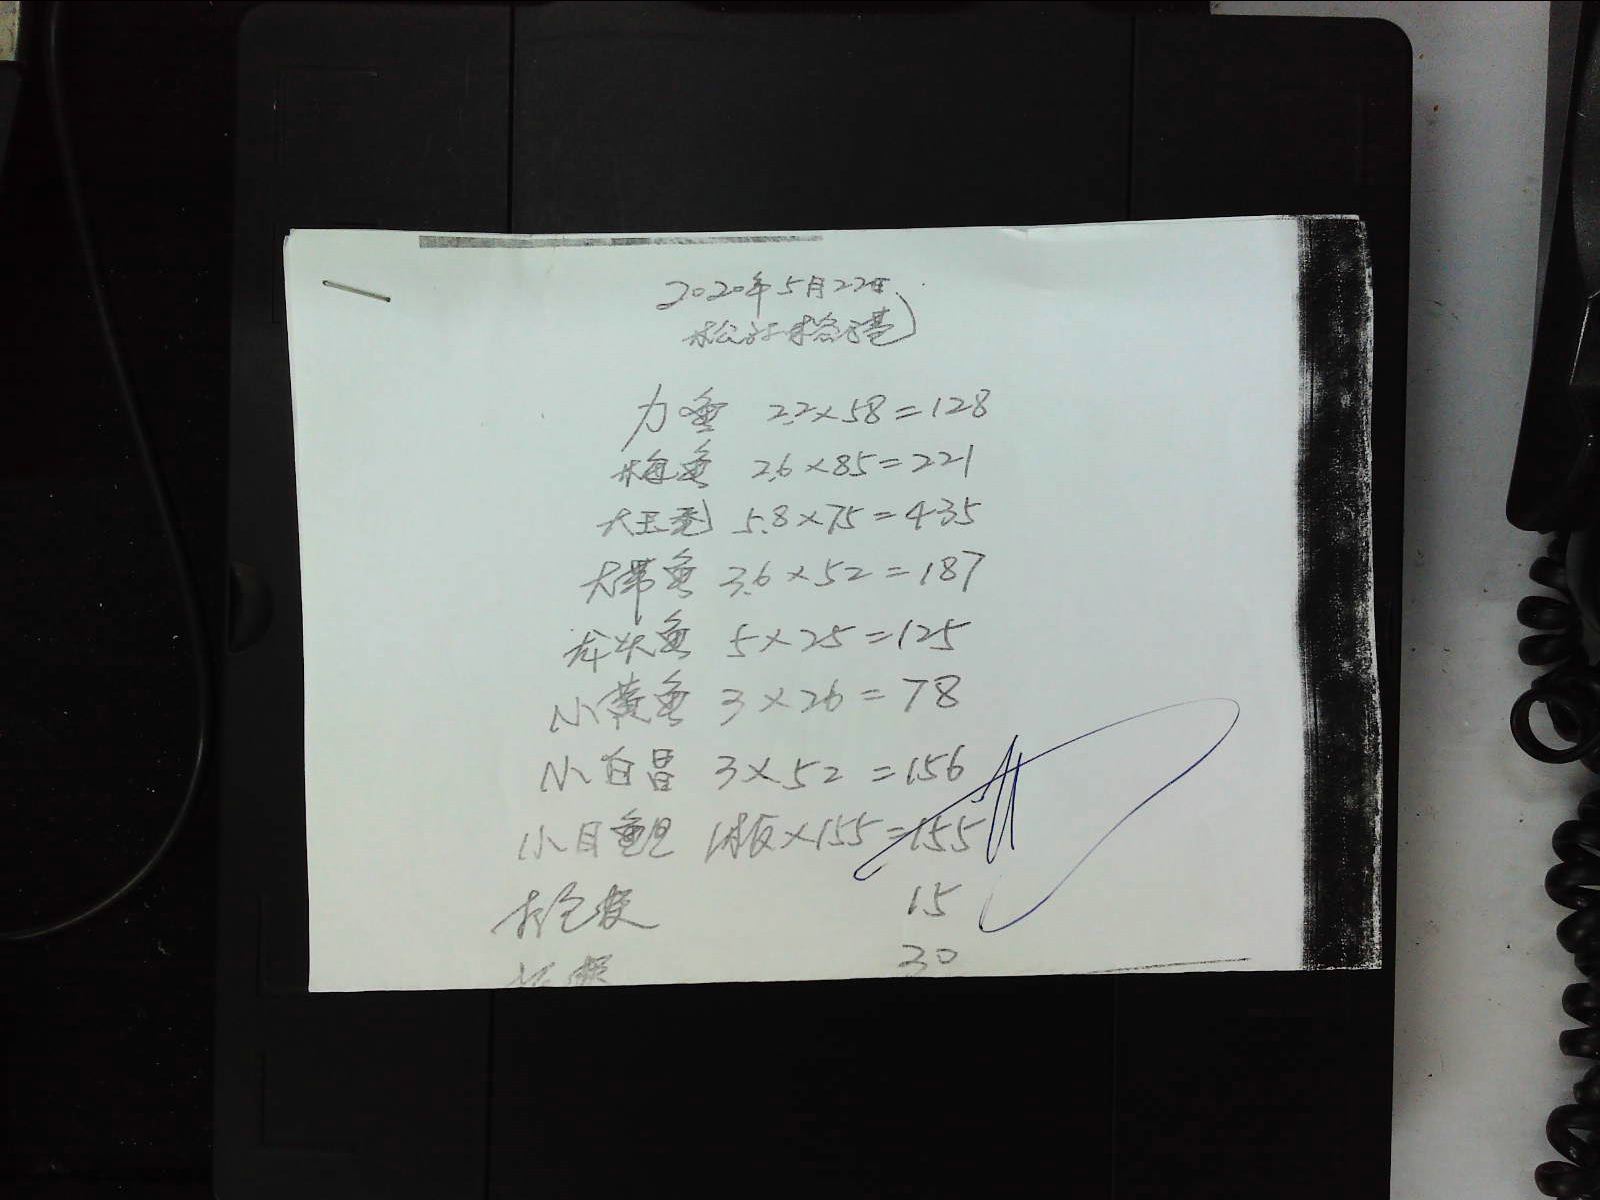 2020年5月22日
力鱼 2.2×58=128
梅鱼 2.6×85=221
大玉秃 5.8×75=435
大带鱼 3.6×52=187
龙头鱼 5×25=125
小黄鱼 3×26=78
小白昌 3×52=156
小目鱼 1板×155=155
打包费 15
30